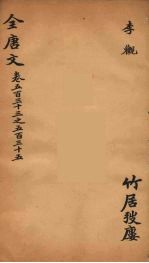 李觀
全唐文
卷五百三十三之五百三十五
竹居搜廔